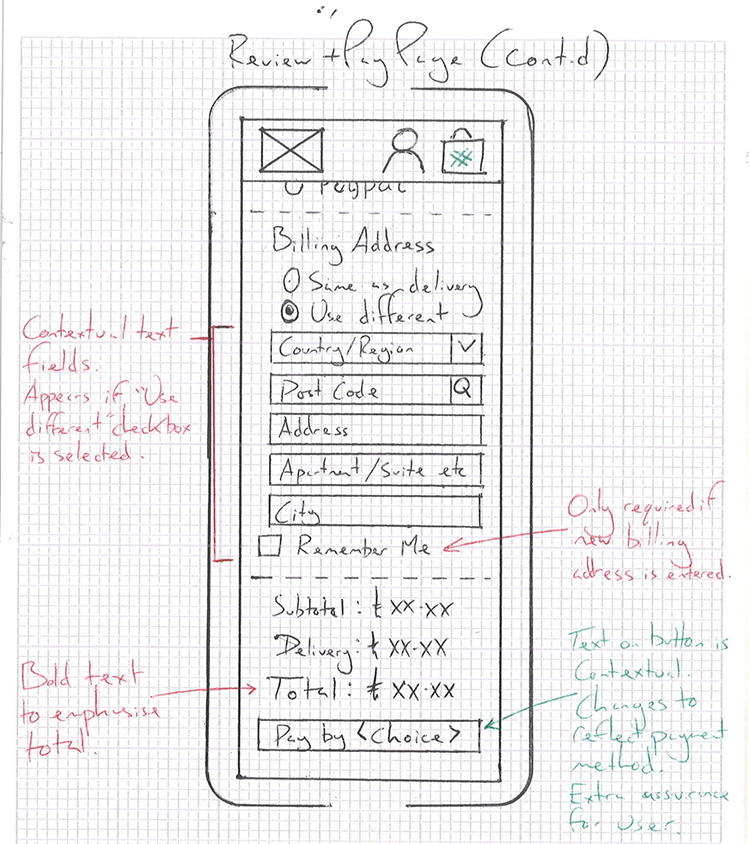 Review + Pay Page (Cont.d)
PayPal
Billing Address
Same as delivery
Use different
Country/Region
Post Code
Address
Apartment/Suite etc
City
Remember Me
Subtotal: £ XX.XX
Delivery: £ XX.XX
Total: £ XX.XX
Pay by <Choice>
Contextual text
fields.
Appears if "Use
different" checkbox
is selected.
Only required if
new billing
adress is entered.
Bold text
to emphasise
total.
Text on button is
Contextual.
Changes to
reflect payment
method.
Extra assurance
for user.